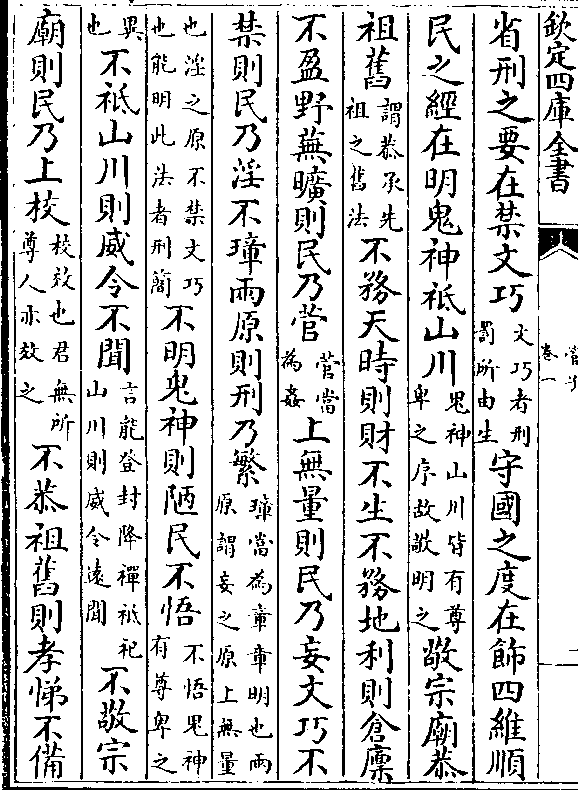 欽定四庫全書
卷一
二
省刑之要在禁文巧文巧者刑罰所由生守國之度在飾四維順
民之經在明鬼神祗山川鬼神山川皆有尊卑之序故敬明之敬宗廟恭
祖舊謂恭承先祖之舊法不務天時則財不生不務地利則倉廩
不盈野蕪曠則民乃菅菅當為姦上無量則民乃妄文巧不
禁則民乃淫不璋兩原則刑乃繁璋當為章章明也兩原謂妄之原上無量
也淫之原不禁文巧也能明此法者刑簡不明鬼神則陋民不悟不悟鬼神有尊卑之
異也不祗山川則威令不聞言能登封降禪祗祀山川則威令遠聞不敬宗
廟則民乃上校校效也君無所尊人亦效之不恭祖舊則孝悌不備